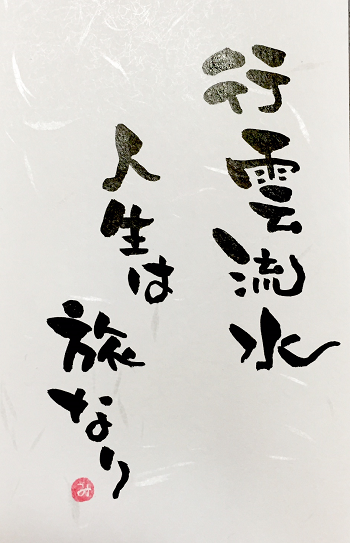 行雲流水
人生は
旅なり
み